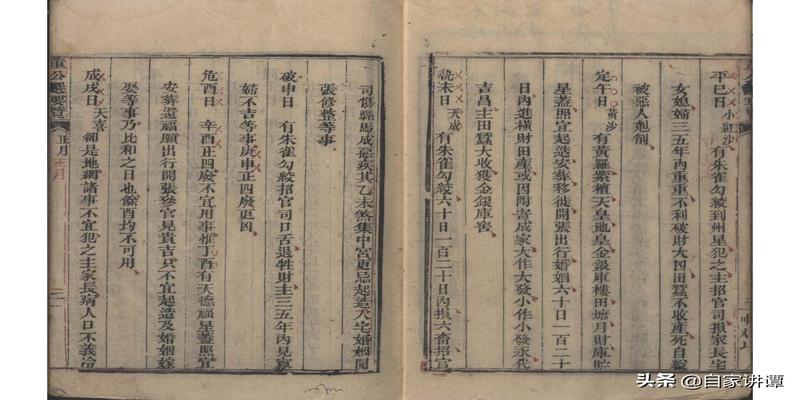 平巳日 小紅沙 有朱雀勾絞到州星犯之主招官司損家長宅
女媳婦三五年內重重不利破財大凶田蠶不收產死自縊
被惡人剋制
定午日 黃沙 有黃羅紫檀天皇地皇金銀庫樓田塘月財庫貯
星蓋照宜起造安葬移徙開張出行婚姻六十日一百二十
日內進橫財田產或因附寄成家大作大發小作小發永代
吉昌主田蠶大收獲金銀庫窖
執未日 天成 有朱雀勾絞六十日一百二十日內損六畜招官
司傷縣馬成惡疾其乙未煞集中宮更忌起造入宅婚姻開
張修整等事
破申日 有朱雀勾絞招官司口舌退牲財主三五年內見寡
婦不吉等事庚申正四廢更凶
危酉日 辛酉正四廢不宜用事惟丁酉有天德福星蓋照宜
安葬還福願出行開張參官見貴吉只不宜起造及婚姻嫁
娶等事乃比和之日也餘酉均不可用
成戌日 天喜 卻是地網諸事不宜犯之主家長病人口不義冷
董公選要覽 正月 正月 二
头条 @自家讲谭